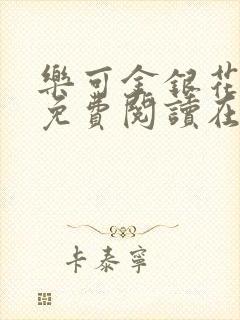 樂可金銀花
免費閱讀在
卡泰寧